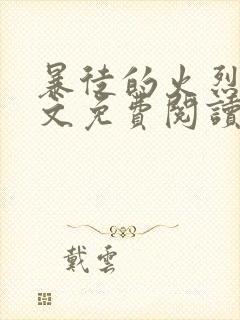 暴徒的火烈
文免費閱讀
戴雲